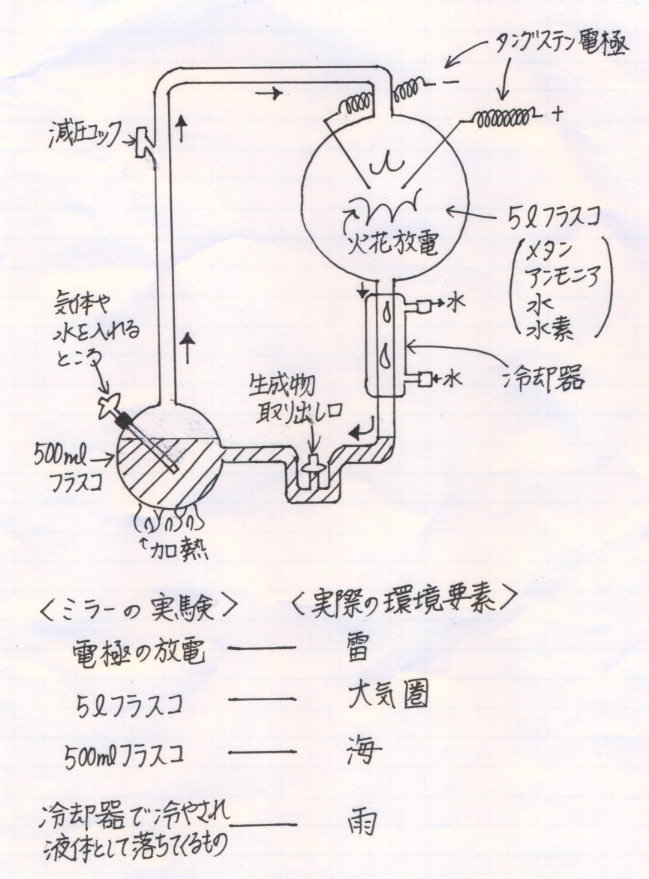 タングステン電極
−
+
減圧コック
火花放電
5ℓフラスコ
メタン
アンモニア
水
水素
水
水
冷却器
気体や
水を入れる
ところ
生成物
取り出し口
500mℓ
フラスコ
加熱
<ミラーの実験> <実際の環境要素>
電極の放電 ── 雷
5ℓフラスコ ── 大気圏
500mℓフラスコ ── 海
冷却器で冷やされ
液体として落ちてくるもの ── 雨